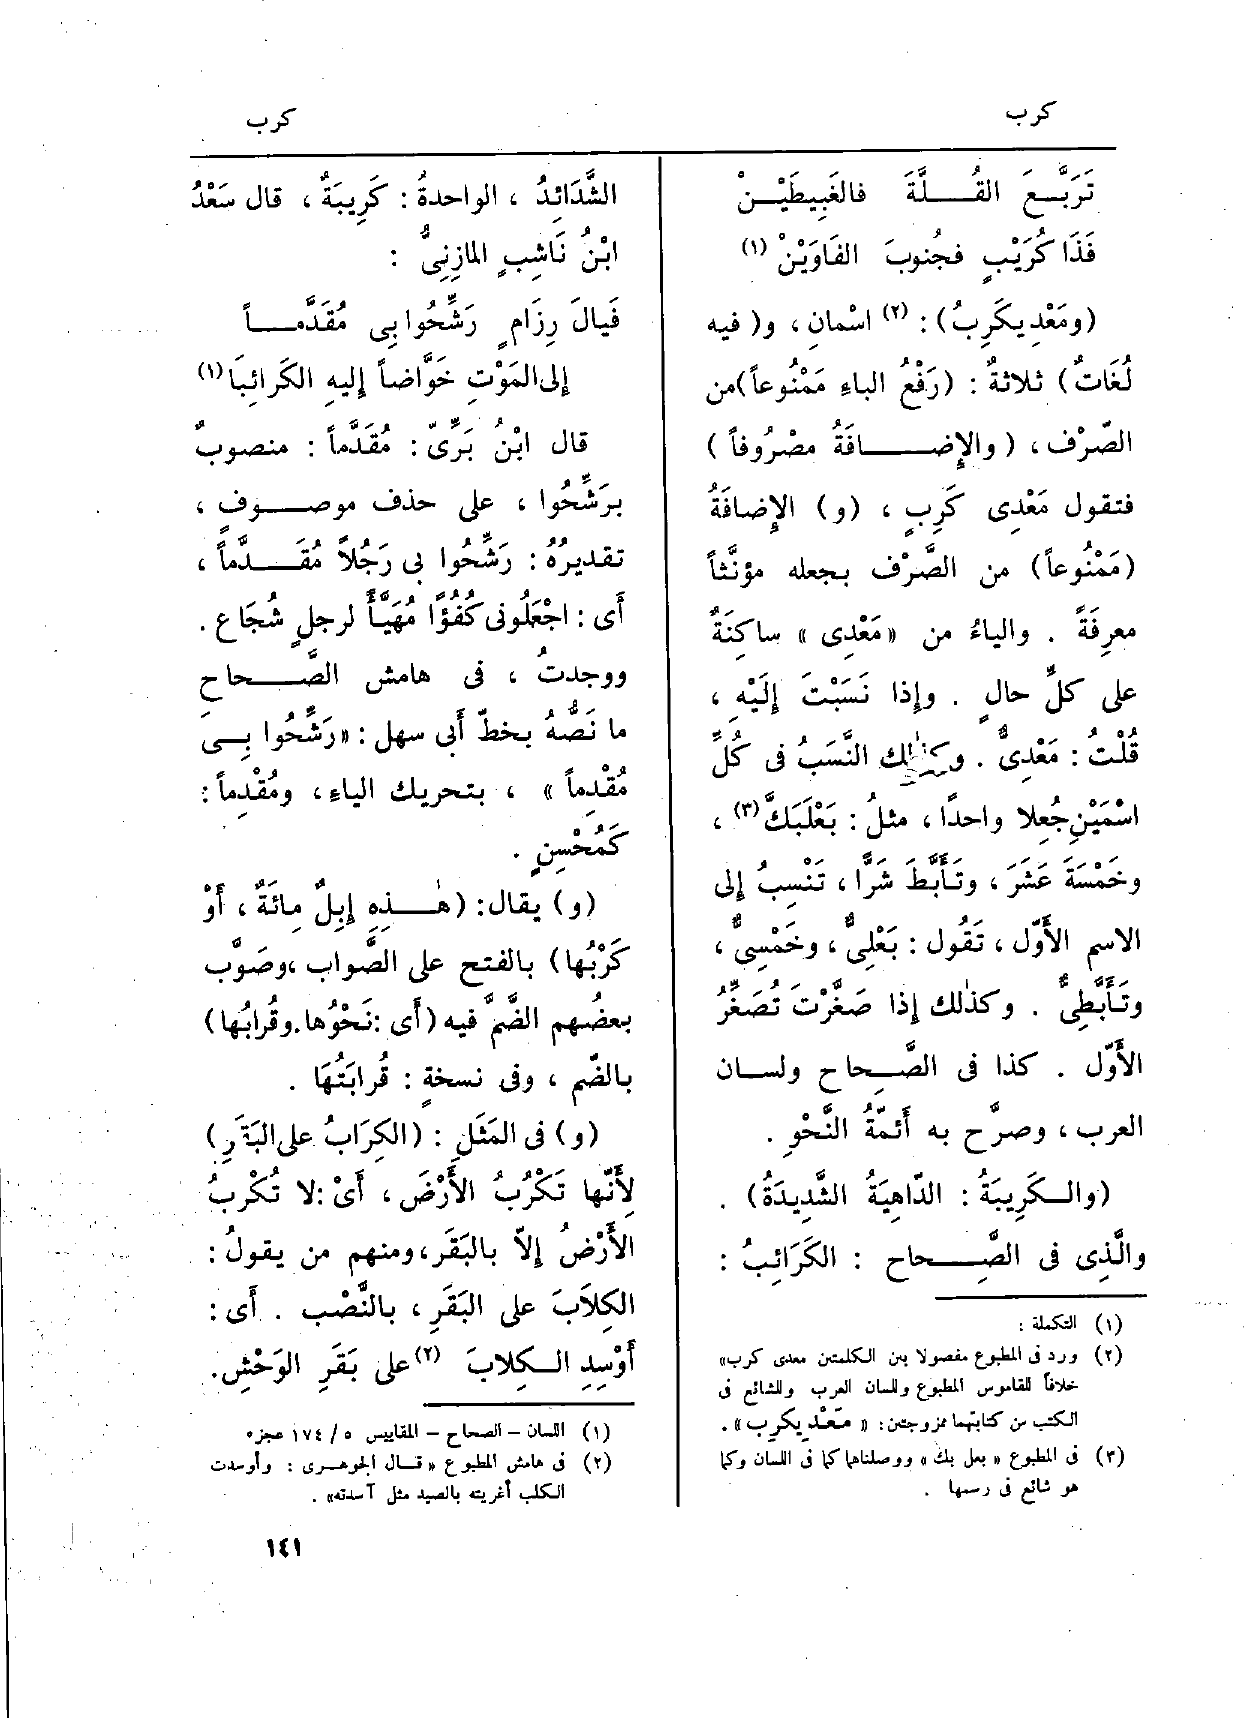 كرب
كرب
تَرَبَّعَ القُلَّةَ فالغَبِيطَيْنْ
فَذَا كُرَيْبٍ فجُنوبَ الفَاوَيْنْ (١)
(ومَعْدِيكَرِبُ) : (٢) اسْمانِ ، و(فيه
لُغَاتٌ) ثلاثةٌ : (رَفْعُ الباءِ مَمْنُوعاً)من
الصّرْف ، (والإِضافَةُ مصْرُوفاً )
فتقول مَعْدِى كَرِبٍ ، (و) الإِضافَةُ
(مَمْنُوعاً) من الصَّرْف بجعله مؤنَّثاً
معرِفَةً . والياءُ من «مَعْدِى» ساكِنَةٌ
على كلِّ حالٍ . وإِذا نَسَبْتَ إِلَيْهِ ،
قُلْتُ : مَعْدِىٌّ . وكذٰلك النَّسَبُ فى كُلِّ
اسْمَيْنِ جُعِلا واحدًا ، مثلُ : بَعْلَبَكَّ(٣) ،
وخَمْسَةَ عَشَرَ ، وتَأَبَّطَ شَرًّا ، تَنْسِبُ إِلى
الاسم الأَوّل ، تَقُول : بَعْلِىٌّ ، وخَمْسِىٌّ ،
وتَأَبَّطِىٌّ . وكذٰلك إِذا صَغَّرْتَ تُصَغِّرُ
الأَوّل . كذا فى الصّحاح ولسان
العرب ، وصرّح به أَئمّةُ النَّحْوِ .
(والكَرِيبَةُ : الدّاهِيَةُ الشَّدِيدَةُ) .
والَّذِى فى الصِّحاح : الكَرَائِبُ :
(١) التكملة :
(٢) ورد فى المطبوع مفصولا بين الكلمتين معدى كرب»
خلافاً للقاموس المطبوع واللسان العرب والشائع فى
الكتب من كتابتهما مزوجتين : « مَعْدِيكرِب» .
(٣) فى المطبوع « بعل بك » ووصلناها كما فى اللسان وكما
هو شائع فى رسمها .
الشَّدَائدُ ، الواحدةُ : كَرِيبَةٌ ، قال سَعْدُ
ابْنُ نَاشِبٍ المازِنِىُّ :
فَيالَ رِزَامٍ رَشِّحُوا بِى مُقَدَّماً
إِلى المَوْتِ خَوَّاضاً إِليه الكَرائبَا (١)
قال ابْنُ بَرِّىّ : مُقَدَّماً : منصوبٌ
برَشِّحُوا ، على حذف موصوف ،
تقديرُهُ : رَشِّحُوا بى رَجُلاً مُقَدَّماً ،
أَى : اجْعَلُونِى كُفُؤًا مُهَيَّأً لرجلٍ شُجَاع .
ووجدتُ ، فى هامش الصَّحاحِ
ما نَصُّهُ بخطّ أَبى سهل : «رَشِّحُوا بِىَ
مُقْدِماً » ، بتحريك الياءِ ، ومُقْدِماً :
كَمُحْسِنٍ .
(و) يقال: (هٰذِهِ إِبِلٌ مِائَةٌ ، أَوْ
كَرْبُها) بالفتح على الصَّواب ،وصَوَّب
بعضُهم الضَّمَّ فيه (أَى :نَحْوُها.وقُرابُها)
بالضّم ، وفى نسخةٍ : قُرابَتُهَا .
(و) فى المَثَلِ : (الكِرَابُ على البَقَرِ)
لأَنّها تَكْرُبُ الأَرْضَ ، أَىْ :لا تُكْرَبُ
الأَرْضُ إِلاّ بالبَقَر،ومنهم من يقولُ :
الكِلاَبَ على البَقَرِ ، بالنَّصْب . أَى :
أَوْسِدِ الكِلابَ (٢)على بَقَرِ الوَحْشِ.
(١) اللسان – الصحاح – المقاييس ٥ / ١٧٤ عجزه
(٢) فى هامش المطبوع « قال الجوهرى : وأوسدت
الكلب أغريته بالصيد مثل آسدته» .
١٤١